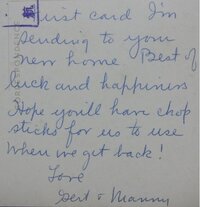 card I'm
sending to your
new home Best of
luck and happiness
Hope you'll have chop
sticks for us to use
when we get back!
Love
Gert & Manny